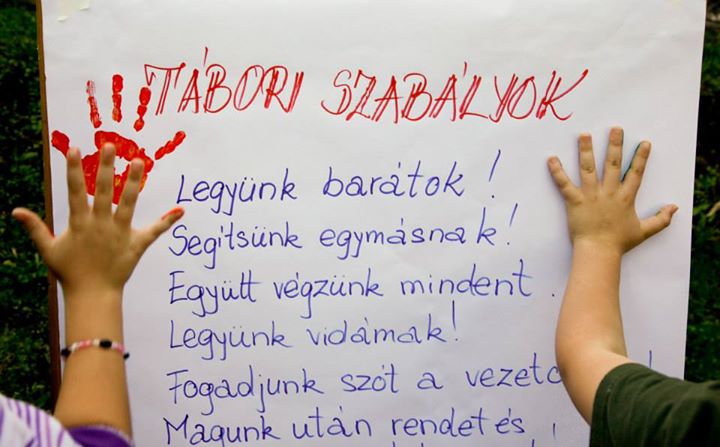 TÁBORI SZABÁLYOK
Legyünk barátok!
Segítsünk egymásnak!
Együtt végzünk mindent.
Legyünk vidámak!
Fogadjunk szót a !
Magunk után rendet és !